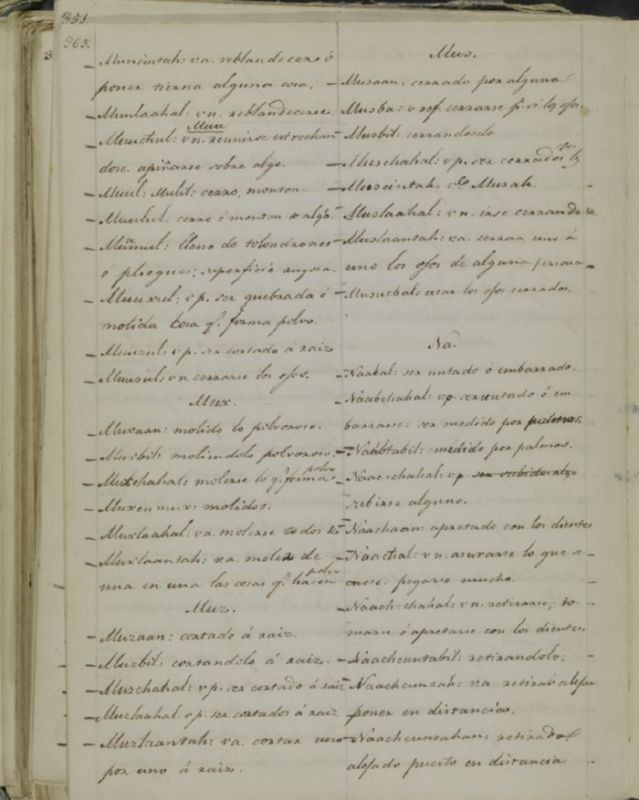 351.
365.
Muncintah: va. reblandecerse ó
poner tierna alguna cosa.
Mumlaahal: vn. reblandecerse.
Muu
Muuchul: vn. reunirse estrechan
dose. apiñarse sobre algo.
Muul: Mulit: cerro, monton.
Muulul: cerro ó monton de algo.
Muumuul: lleno de tolondrones
o pliegues; superficie rugosa.
Muuxul: vp. ser quebrada ó
molida cosa q. forma polvo.
Muuzul: vp. ser cortado á raiz
Muuɔul: vn. cerrarse los ojos.
Mux.
Muxaan: molido lo polvoroso.
Muxbil: moliendolo polvoroso.
Muxchahal: molerse lo q. forma polvo
Muxenmux: molidos.
Muxlaahal: va. molerse todos
Muxlaantah: va. moler de
una en una las cosas q. hacen polvo
Muz.
Muzaan: cortado á raiz.
Muzbil: cortandolo á raiz.
Muzchahal: vp. ser cortado á raiz
Muzlaahal: vp. ser cortados á raiz
Muzlaantah: va. cortar uno
por uno á raiz.
Muɔ.
Muɔaan: cerrado por alguno
Muɔba: v ref. cerrarse pr. si los ojos.
Muɔbil: cerrandolo
Muɔchahal: vp. ser cerrados
Muɔcintah: Muɔah.
Muɔlaahal: vn. irse cerrando
Muɔlaantah: va. cerrar uno á
uno los ojos de alguna persona
Muɔucbal: estar los ojos cerrados.
Na.
Naabal: ser untado ó embarrado.
Naabchahal: vp. ser untado ó em-
barrarse: ser medido por palmos.
Naabtabil: medido por palmos.
Naacchahal: vp ser subido
subirse alguno.
Naachaan: apretado con los dientes
Naachal: vn. asurarse lo que
cuese: pegarse mucho.
Naach-chahal: vn. retirarse; to
marse ó apretarse con los dientes.
Naachcuntabil: retirandolo.
Naachcunzah: va. retirar alejar
poner en distancias.
Naachcunzahan: retirado
alejado puesto en distancia